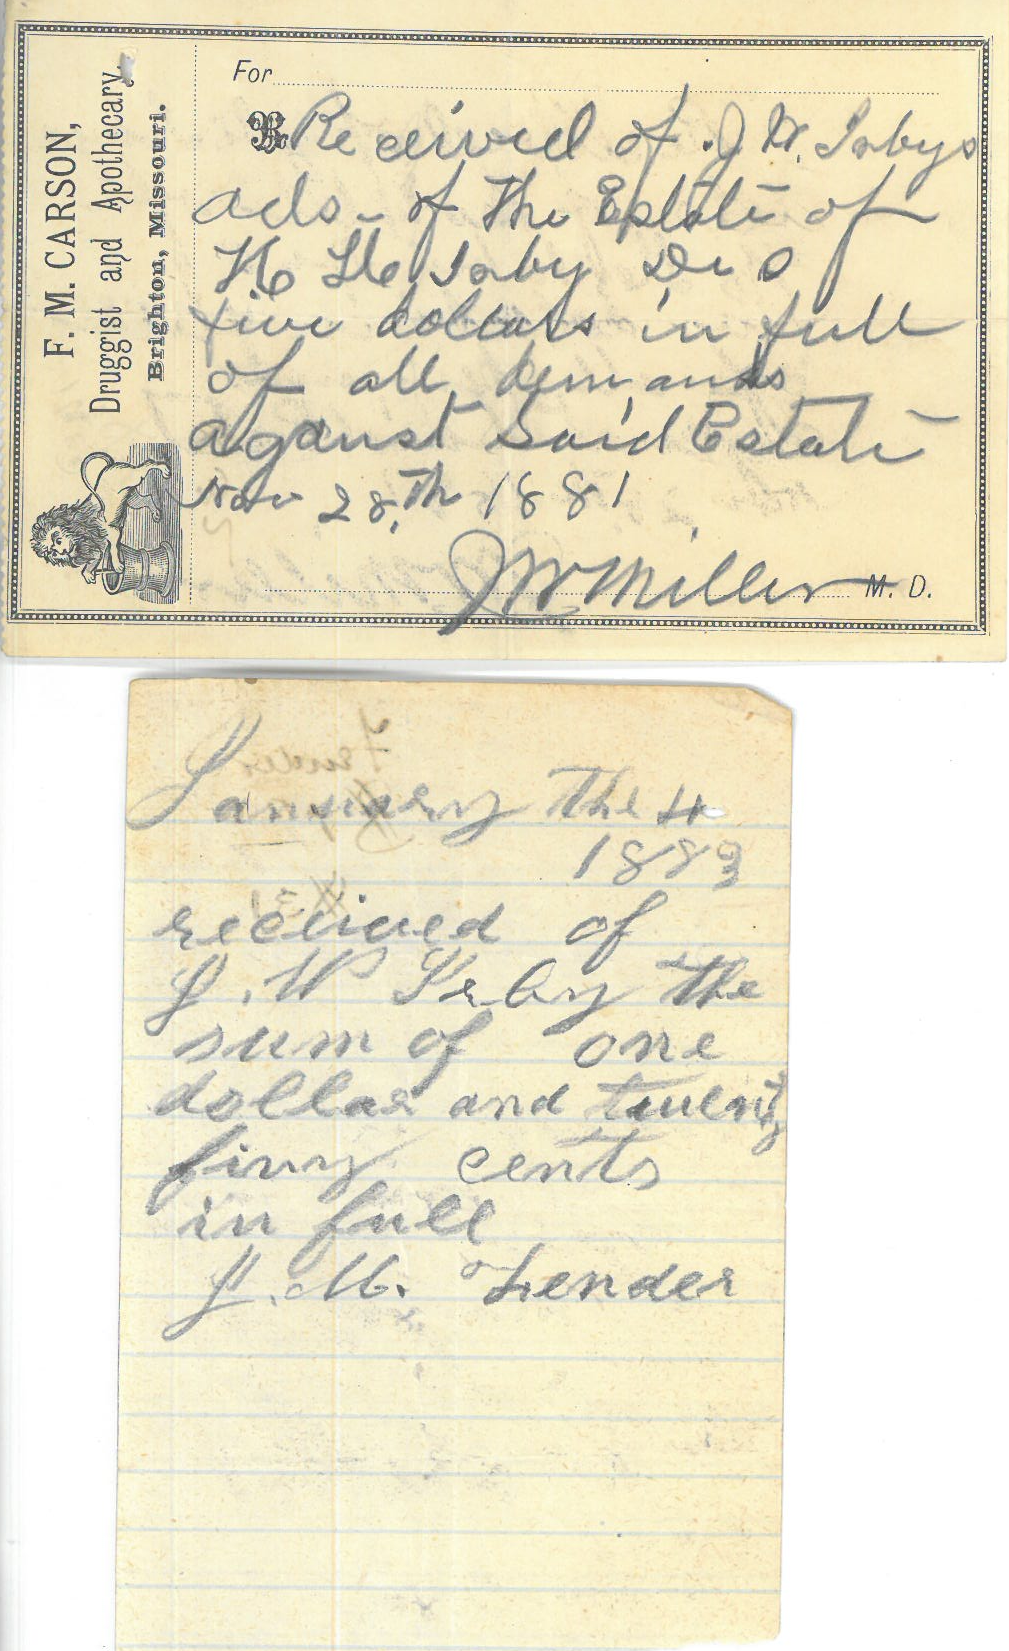 F. M. CARSON,
Druggist and Apothecary.
Brighton, Missouri.
For
Rx Received of J W.
ads - of the Estate of
five dollars in full
of all demands
against Said Estate
Nov 28,th 1881
J W Miller M. D.
January the 4
1883
received of
J. W the
sum of one
dollar and twenty
fivy cents
in full
J. M. Fender